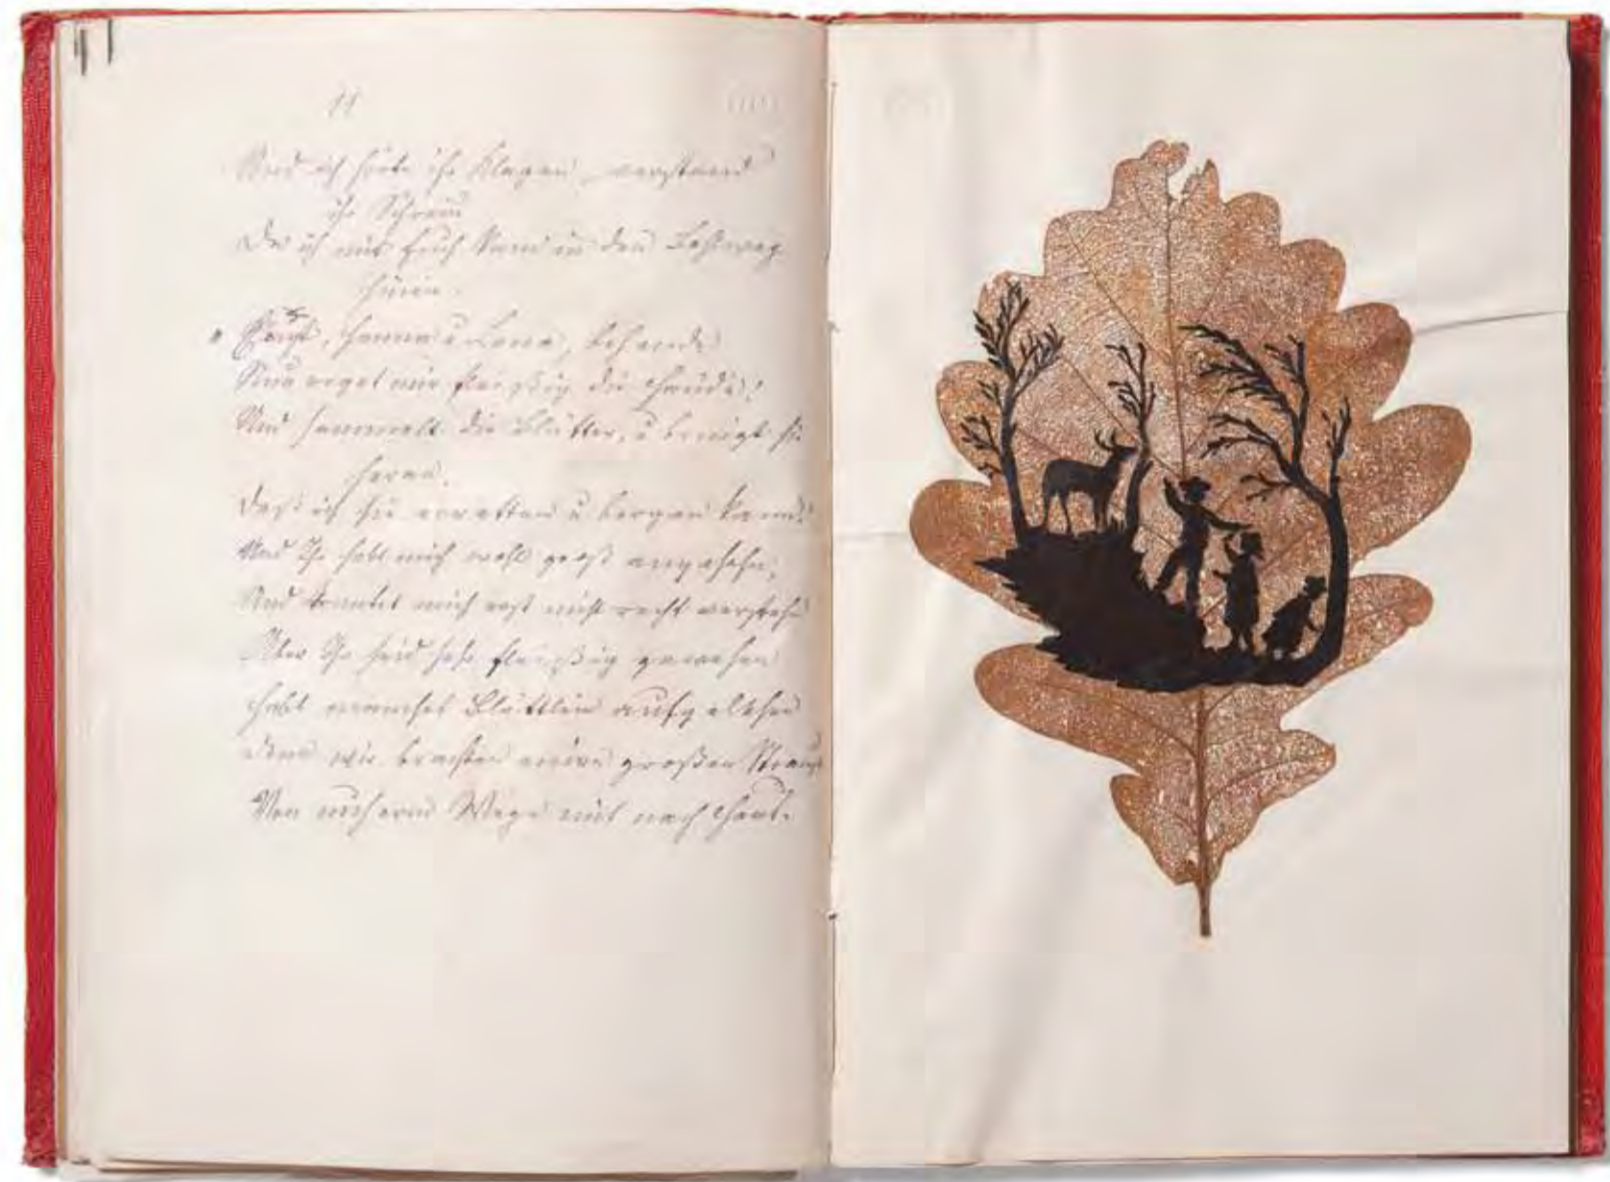 11
Und ich hörte ihr Klagen, verstand
ihr Schrein
Da ich mit Euch kam in den
hinein.
Hanna u Lene, behende
Nun reget mir fleißig die Hände!
Und sammelt die Blätter, u bringt sie
heran,
Daß ich sie erretten u bergen kann.
Und Ihr habt mich wohl groß angesehn,
Und konntet mich erst nicht recht verstehn
Aber Ihr seid sehr fleißig gewesen
Habt manches Blättlein aufgelesen
Denn wir brachten einen großen Strauß
Von unserm Wege mit nach Haus.